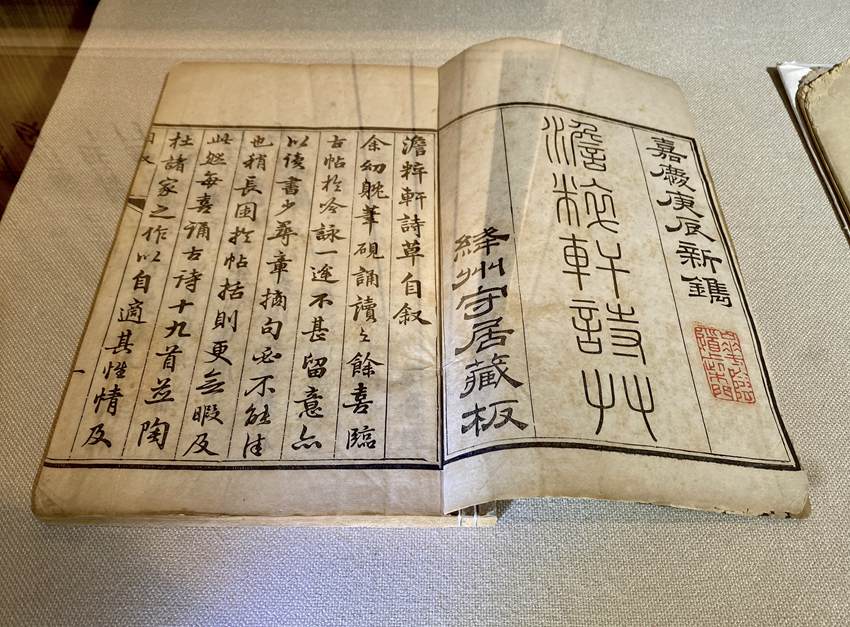 嘉慶庚辰新鐫
澹粹軒詩艸
絳州守居藏板
澹粹軒詩草自叙
余幼躭筆硯誦讀之餘喜臨
古帖於吟詠一途不甚留意亦
以讀書少尋章摘句必不能佳
也稍長囿於帖括則更無暇及
此然每喜誦古詩十九首並陶
杜諸家之作以自適其性情及
一